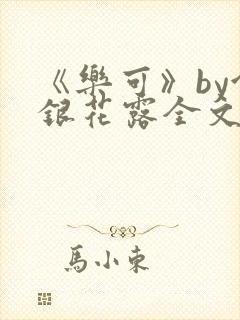 《樂可》by
銀花露全文
馬小東